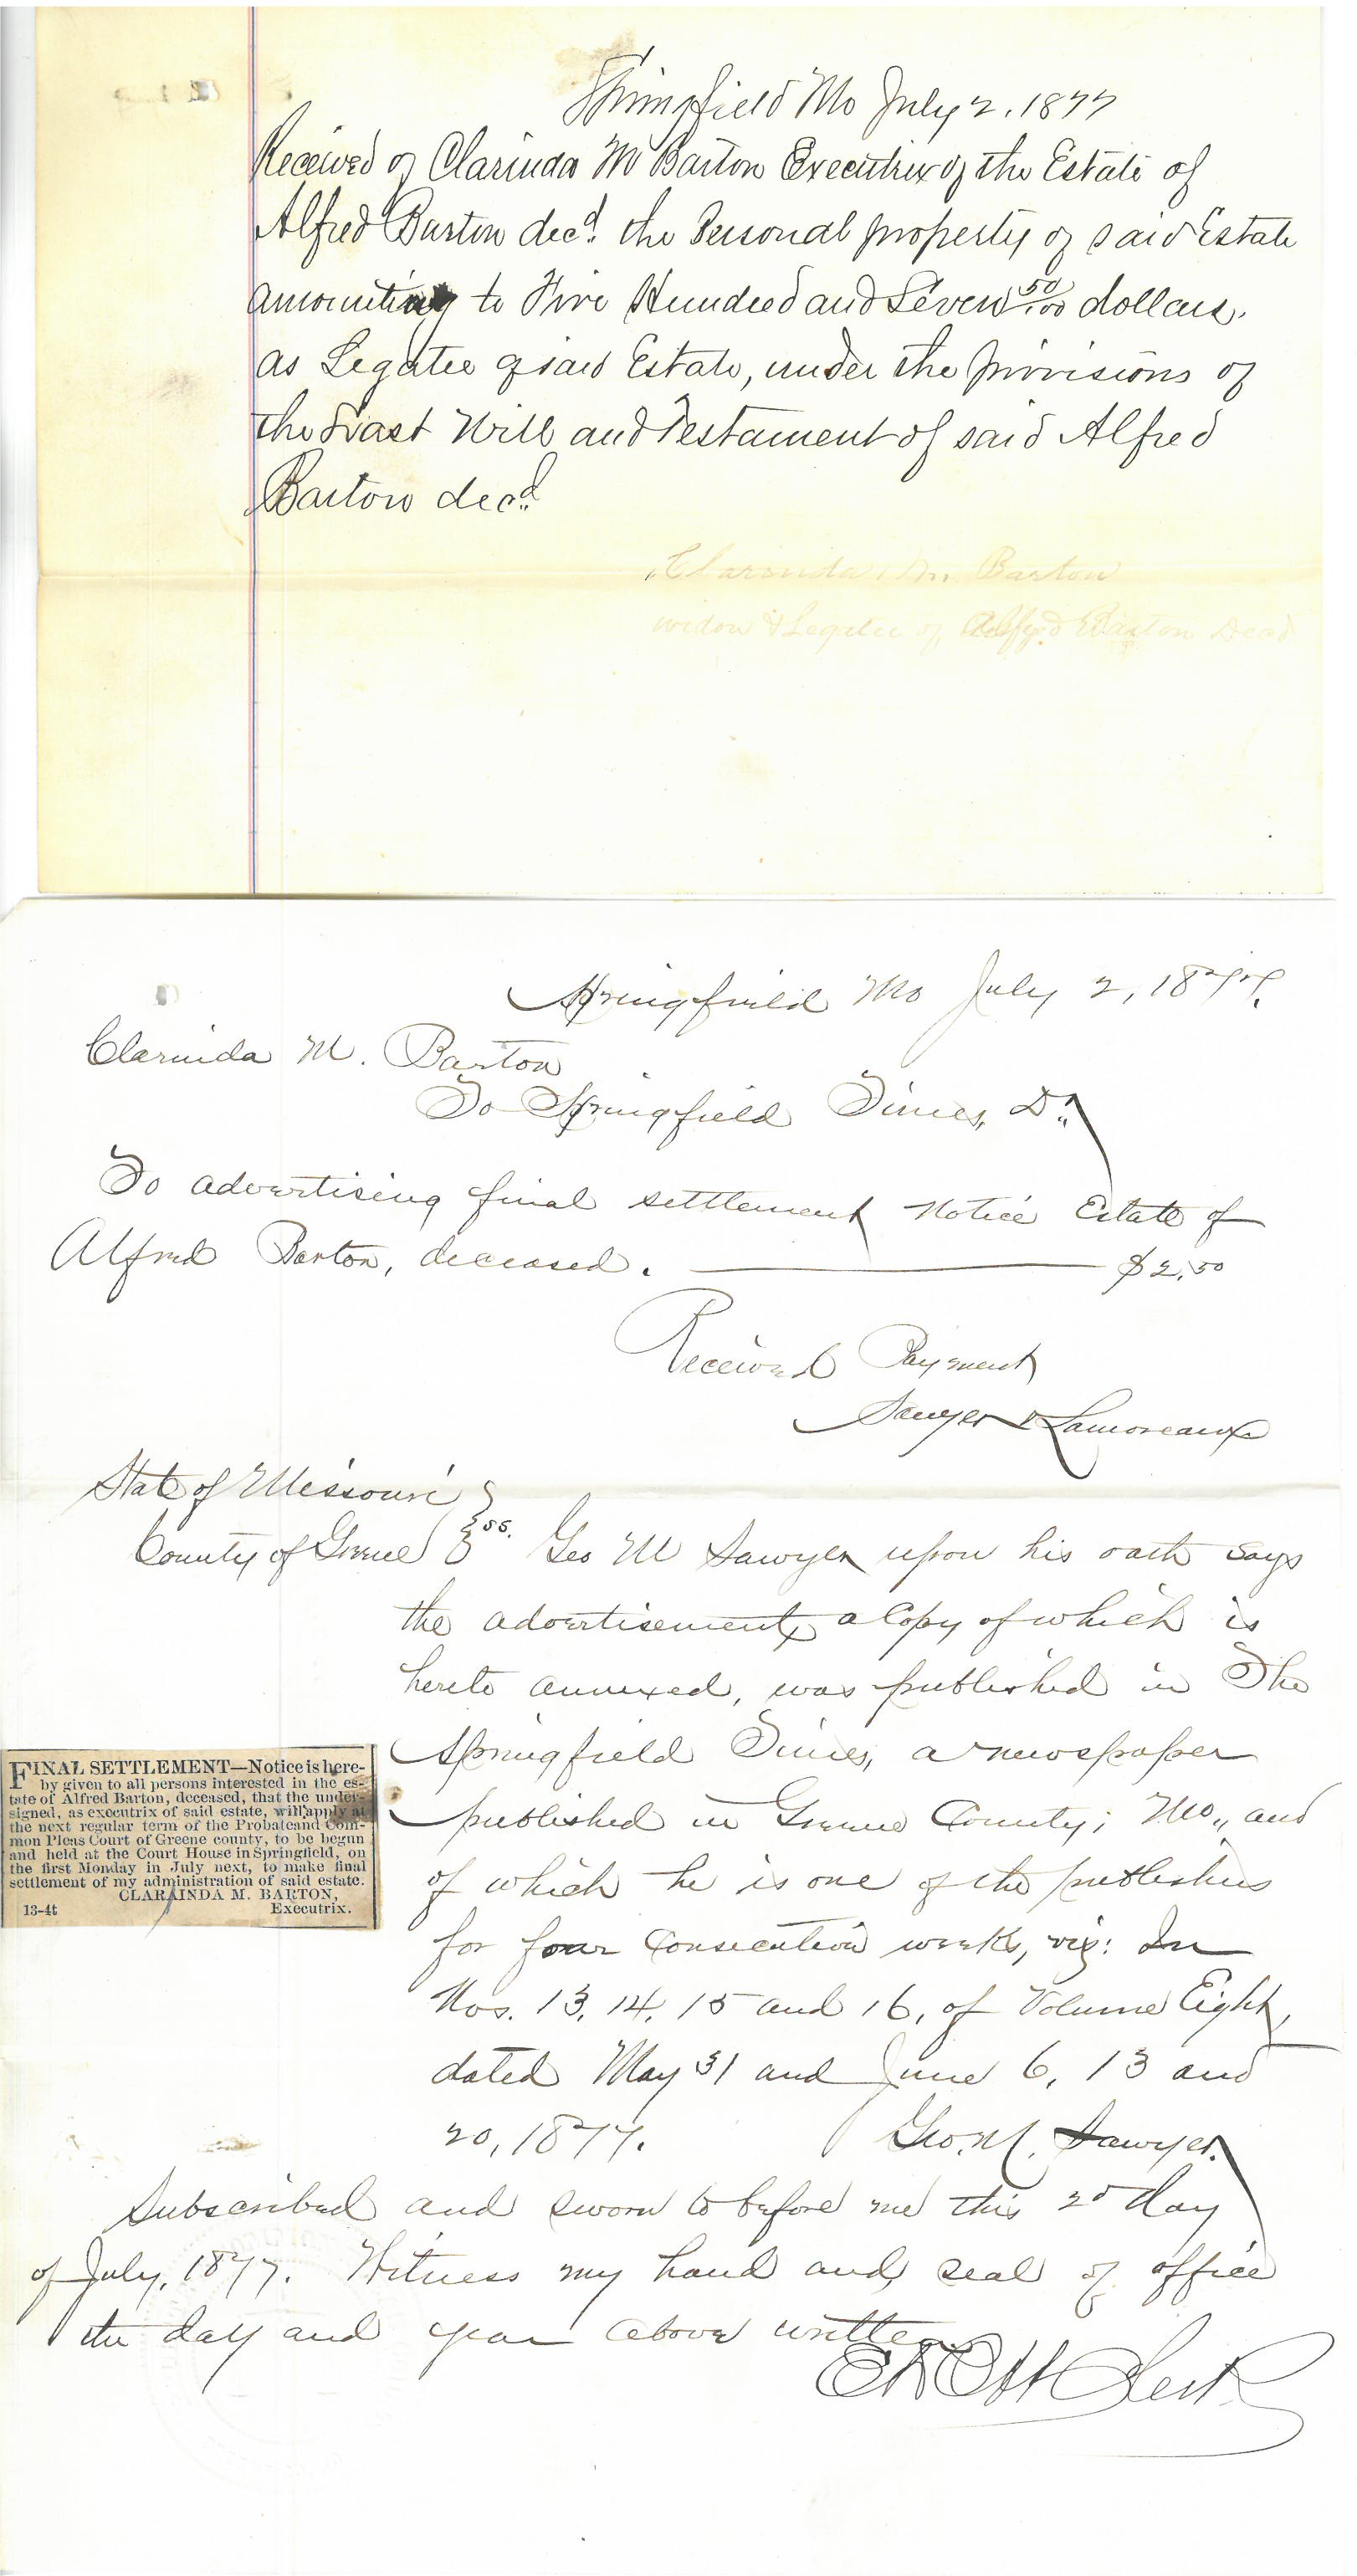 Springfield Mo July 2, 1877
Received of Clarinda M Barton Executrix of the Estate of
Alfred Barton decd. the Personal property of said Estate
amounting to Five Hundred and Seven 50/100 dollars.
as Legatee of said Estate, under the provisions of
the Last Will and Testament of said Alfred
Barton decd.
Clarinda M. Barton
widow & Legatee of Alfred Barton Decd
Springfield Mo July 2, 1877.
Clarinda M. Barton
To Springfield Times, Dr.
To advertising final settlement notice Estate of
Alfred Barton, deceased. $2.50
Received Payment
Sawyer & Lamoreaux
State of Missouri
County of Greene } ss. Geo M Sawyer upon his oath says
the advertisement, a copy of which is
hereto annexed, was published in The
Springfield Times, a newspaper
published in Greene County, Mo., and
of which he is one of the publishers
for four consecutive weeks, viz: In
Nos. 13, 14, 15 and 16, of Volume Eight,
dated May 31 and June 6, 13 and
20, 1877. Geo. M. Sawyer.
FINAL SETTLEMENT—Notice is here-
by given to all persons interested in the es-
tate of Alfred Barton, deceased, that the under-
signed, as executrix of said estate, will apply at
the next regular term of the Probate and Com-
mon Pleas Court of Greene county, to be begun
and held at the Court House in Springfield, on
the first Monday in July next, to make final
settlement of my administration of said estate.
CLARAINDA M. BARTON,
13-4t Executrix.
Subscribed and sworn to before me this 2d day
of July, 1877. Witness my hand and seal of office
the day and year above written
Clerk